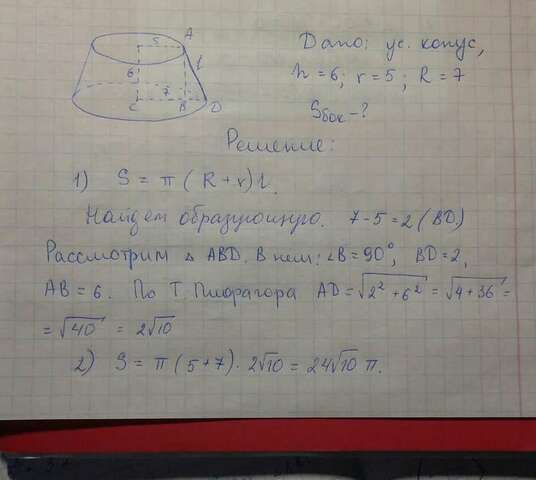 5 A
6 l
7
C B D
Дано: ус. конус,
h = 6; r = 5; R = 7
Sбок - ?
Решение:
1) S = π ( R + r) l.
Найдем образующую. 7 - 5 = 2 ( BD)
Рассмотрим △ ABD. В нем: ∠B = 90°, BD = 2,
AB = 6. По Т. Пифагора AD = √(2² + 6²) = √(4 + 36) =
= √40 = 2√10
2) S = π ( 5 + 7) · 2√10 = 24√10 π.